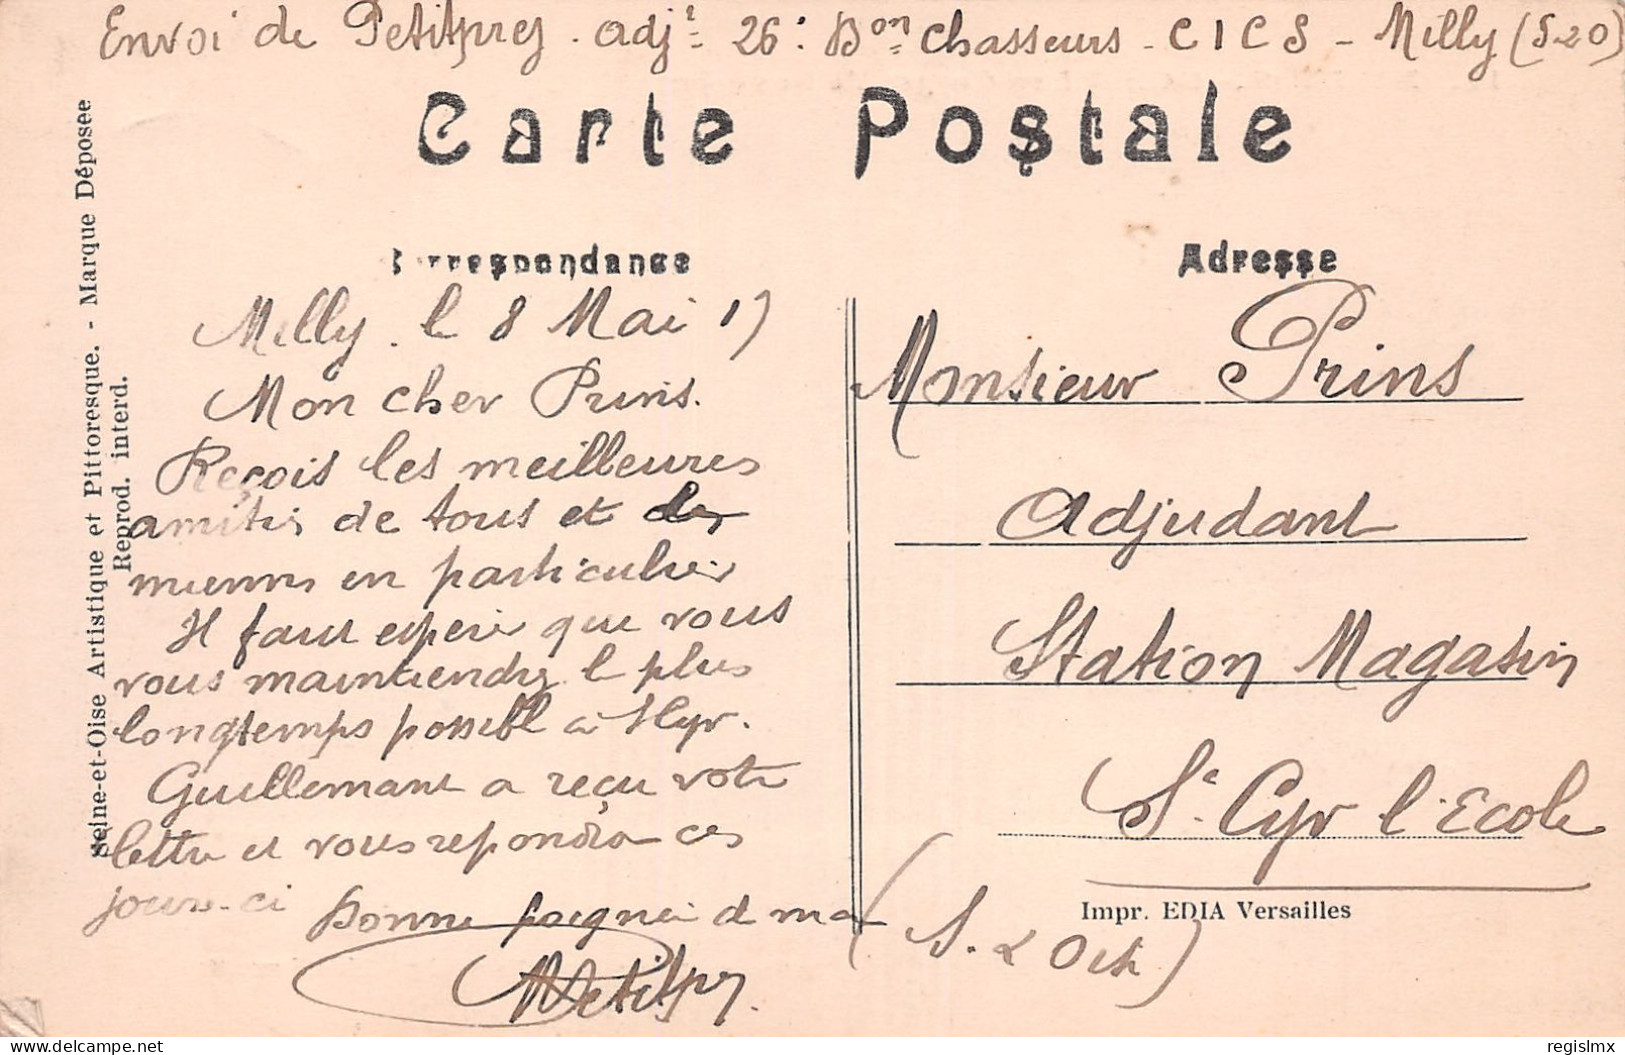 Envoi de Petitprez. adjt 26e Bon Chasseurs - C I C S - Milly (S&O)
Carte Postale
Correspondance
Adresse
Seine-et-Oise Artistique et Pittoresque. - Marque Déposée
Reprod. interd.
Milly. le 8 Mai 17
Mon cher Prins.
Reçois les meilleures
amitiés de tous et des
miennes en particulier
Il faut esperer que vous
vous maintiendrez le plus
longtemps possible à St Cyr.
Guillemant a reçu votre
lettre et vous repondra ces
jours-ci
Bonne poignée de ma
Petitprez
Monsieur Prins
Adjudant
Station Magasin
St Cyr l'Ecole
(S. & Oise)
Impr. EDIA Versailles
regislmx